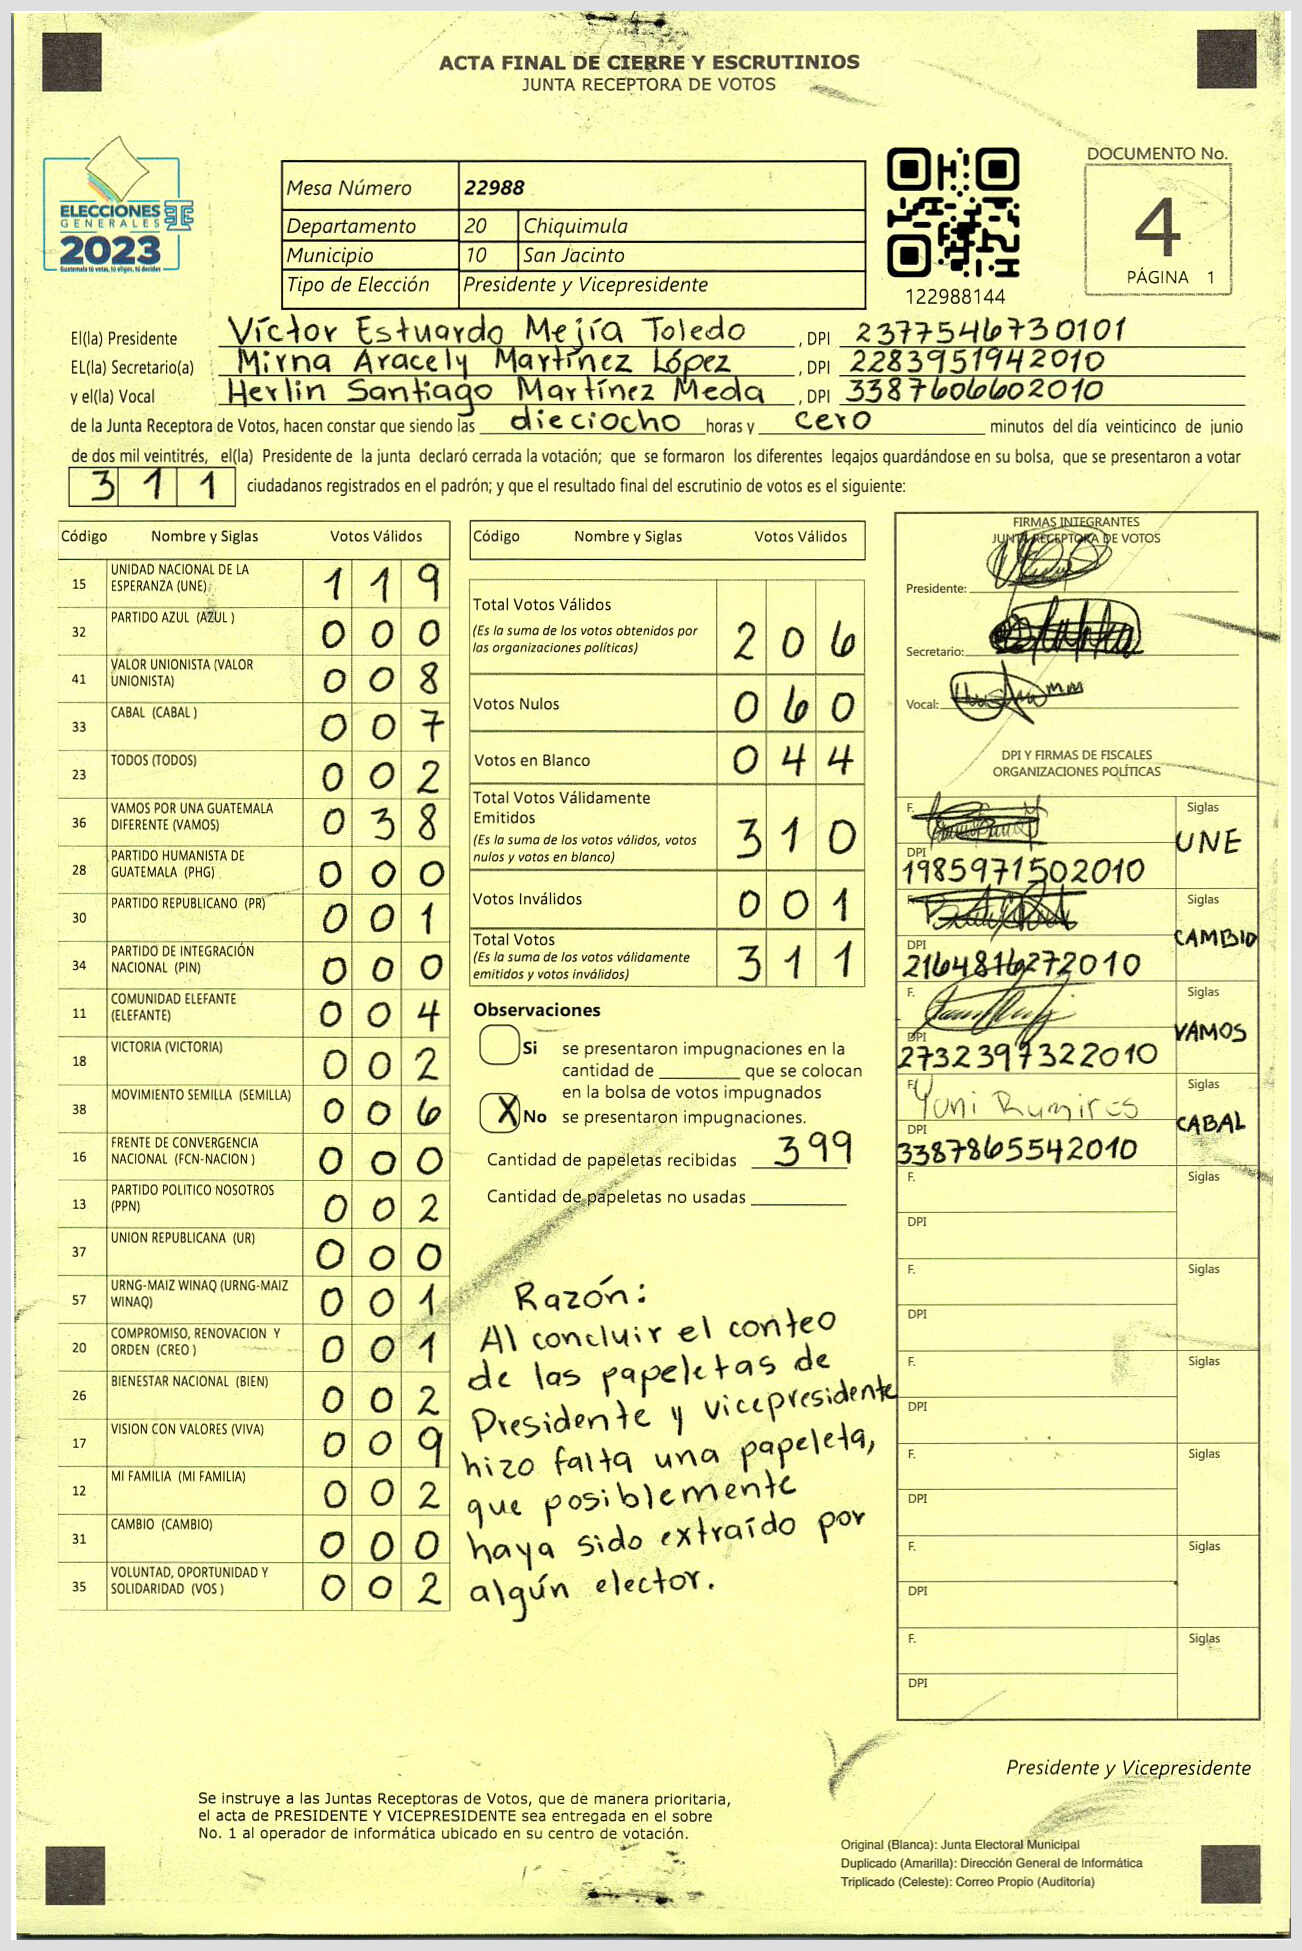 ACTA FINAL DE CIERRE Y ESCRUTINIOS
JUNTA RECEPTORA DE VOTOS
ELECCIONES
GENERALES
2023
Guatemala tú votas, tú eliges, tú decides
Mesa Número 22988
Departamento 20 Chiquimula
Municipio 10 San Jacinto
Tipo de Elección Presidente y Vicepresidente
122988144
DOCUMENTO No.
4
PÁGINA 1
El(la) Presidente Víctor Estuardo Mejía Toledo , DPI 2377546730101
EL(la) Secretario(a) Mirna Aracely Martínez López , DPI 2283951942010
y el(la) Vocal Herlin Santiago Martínez Meda , DPI 3387606602010
de la Junta Receptora de Votos, hacen constar que siendo las dieciocho horas y cero minutos del día veinticinco de junio
de dos mil veintitrés, el(la) Presidente de la junta declaró cerrada la votación; que se formaron los diferentes legajos guardándose en su bolsa, que se presentaron a votar
311 ciudadanos registrados en el padrón; y que el resultado final del escrutinio de votos es el siguiente:
Código Nombre y Siglas Votos Válidos
15 UNIDAD NACIONAL DE LA ESPERANZA (UNE) 119
32 PARTIDO AZUL (AZUL ) 000
41 VALOR UNIONISTA (VALOR UNIONISTA) 008
33 CABAL (CABAL ) 007
23 TODOS (TODOS) 002
36 VAMOS POR UNA GUATEMALA DIFERENTE (VAMOS) 038
28 PARTIDO HUMANISTA DE GUATEMALA (PHG) 000
30 PARTIDO REPUBLICANO (PR) 001
34 PARTIDO DE INTEGRACIÓN NACIONAL (PIN) 000
11 COMUNIDAD ELEFANTE (ELEFANTE) 004
18 VICTORIA (VICTORIA) 002
38 MOVIMIENTO SEMILLA (SEMILLA) 006
16 FRENTE DE CONVERGENCIA NACIONAL (FCN-NACION ) 000
13 PARTIDO POLITICO NOSOTROS (PPN) 002
37 UNION REPUBLICANA (UR) 000
57 URNG-MAIZ WINAQ (URNG-MAIZ WINAQ) 001
20 COMPROMISO, RENOVACION Y ORDEN (CREO ) 001
26 BIENESTAR NACIONAL (BIEN) 002
17 VISION CON VALORES (VIVA) 009
12 MI FAMILIA (MI FAMILIA) 002
31 CAMBIO (CAMBIO) 000
35 VOLUNTAD, OPORTUNIDAD Y SOLIDARIDAD (VOS ) 002
Código Nombre y Siglas Votos Válidos
Total Votos Válidos
(Es la suma de los votos obtenidos por
las organizaciones políticas) 206
Votos Nulos 060
Votos en Blanco 044
Total Votos Válidamente
Emitidos
(Es la suma de los votos válidos, votos
nulos y votos en blanco) 310
Votos Inválidos 001
Total Votos
(Es la suma de los votos válidamente
emitidos y votos inválidos) 311
Observaciones
Si se presentaron impugnaciones en la
cantidad de ________ que se colocan
en la bolsa de votos impugnados
X No se presentaron impugnaciones.
Cantidad de papeletas recibidas 399
Cantidad de papeletas no usadas
Razón:
Al concluir el conteo
de las papeletas de
Presidente y vicepresidente
hizo falta una papeleta,
que posiblemente
haya sido extraído por
algún elector.
FIRMAS INTEGRANTES
JUNTA RECEPTORA DE VOTOS
Presidente:
Secretario:
Vocal:
DPI Y FIRMAS DE FISCALES
ORGANIZACIONES POLÍTICAS
F. Siglas
UNE
DPI
1985971502010
F. Siglas
CAMBIO
DPI
2164816272010
F. Siglas
VAMOS
DPI
2732397322010
F. Yoni Ramires Siglas
CABAL
DPI
3387865542010
F. Siglas
DPI
F. Siglas
DPI
F. Siglas
DPI
F. Siglas
DPI
F. Siglas
DPI
F. Siglas
DPI
Presidente y Vicepresidente
Se instruye a las Juntas Receptoras de Votos, que de manera prioritaria,
el acta de PRESIDENTE Y VICEPRESIDENTE sea entregada en el sobre
No. 1 al operador de informática ubicado en su centro de votación.
Original (Blanca): Junta Electoral Municipal
Duplicado (Amarilla): Dirección General de Informática
Triplicado (Celeste): Correo Propio (Auditoría)